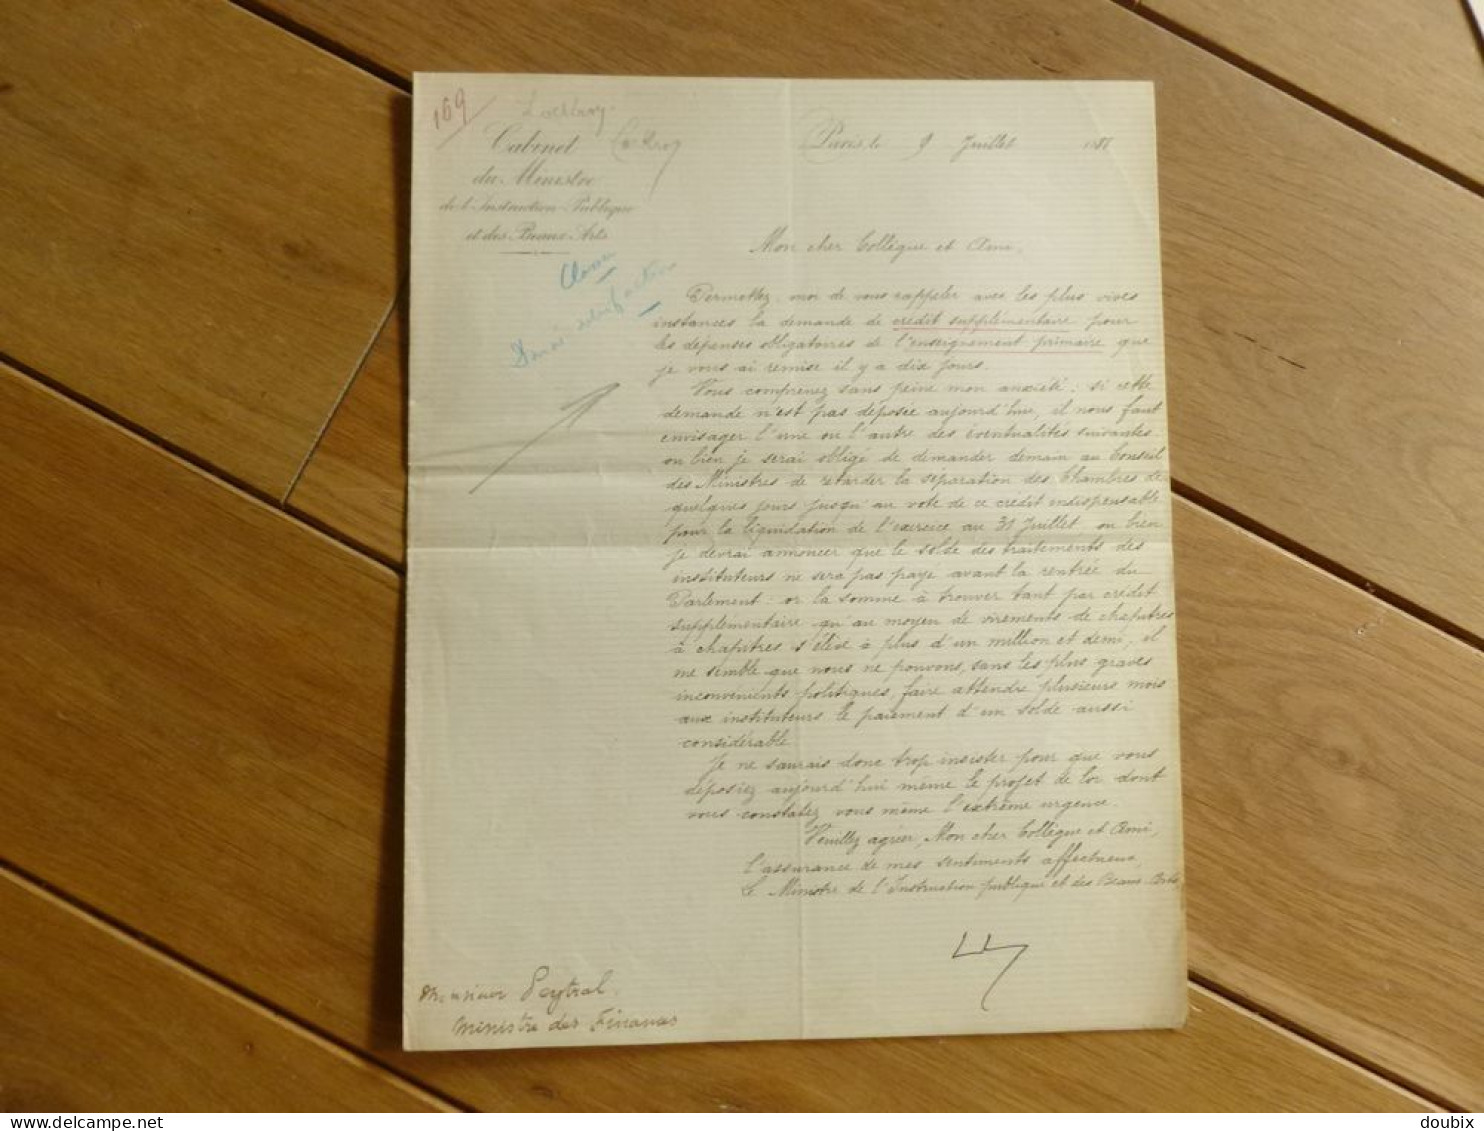 169
Lockroy
Cabinet Lockroy
du Ministre
de l'Instruction Publique
et des Beaux-Arts
Paris, le 9 Juillet 1888
Classer
Donné satisfaction
Mon cher Collègue et Ami,
Permettez-moi de vous rappeler avec les plus vives
instances la demande de crédit supplémentaire pour
les dépenses obligatoires de l'enseignement primaire que
je vous ai remise il y a dix jours.
Vous comprenez sans peine mon anxiété : si cette
demande n'est pas déposée aujourd'hui, il nous faut
envisager l'une ou l'autre des éventualités suivantes :
ou bien je serai obligé de demander demain au Conseil
des Ministres de retarder la séparation des Chambres de
quelques jours jusqu'au vote de ce crédit indispensable
pour la liquidation de l'exercice au 31 Juillet, ou bien
je devrai annoncer que le solde des traitements des
instituteurs ne sera pas payé avant la rentrée du
Parlement : or la somme à trouver tant par crédit
supplémentaire qu'au moyen de virements de chapitres
à chapitres s'élève à plus d'un million et demi, il
me semble que nous ne pouvons, sans les plus graves
inconvénients politiques, faire attendre plusieurs mois
aux instituteurs le paiement d'un solde aussi
considérable
Je ne saurais donc trop insister pour que vous
déposiez aujourd'hui même le projet de loi dont
vous constatez vous même l'extrême urgence.
Veuillez agréer, Mon cher Collègue et Ami,
l'assurance de mes sentiments affectueux,
Le Ministre de l'Instruction publique et des Beaux-Arts
Monsieur Peytral.
Ministre des Finances
delcampe.net
doubix